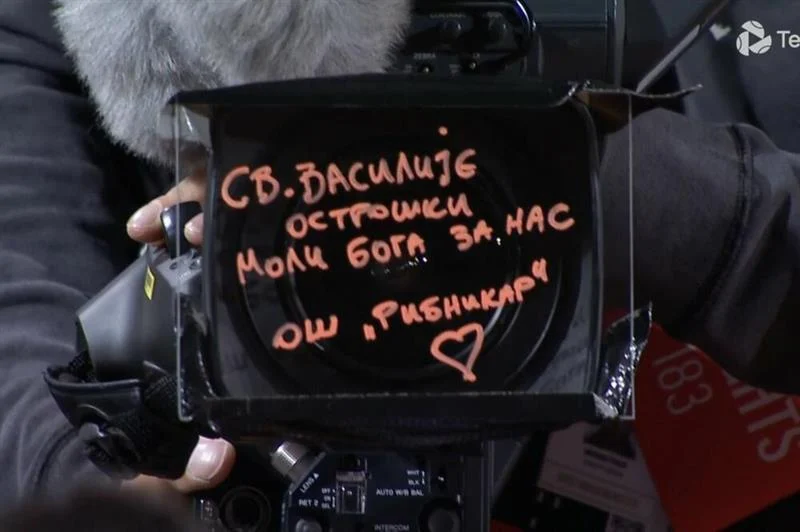 Te
СВ. ВАСИЛИЈЕ
ОСТРОШКИ
МОЛИ БОГА ЗА НАС
ОШ „РИБНИКАР“
183
HTS
LENS
RET 2
OFF
WHT
BLK
AUTO W/B BAL
INTERCOM